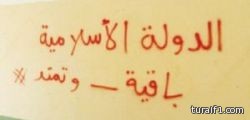 الدولة الأسلامية
باقية – وتمتد
turaif1.com